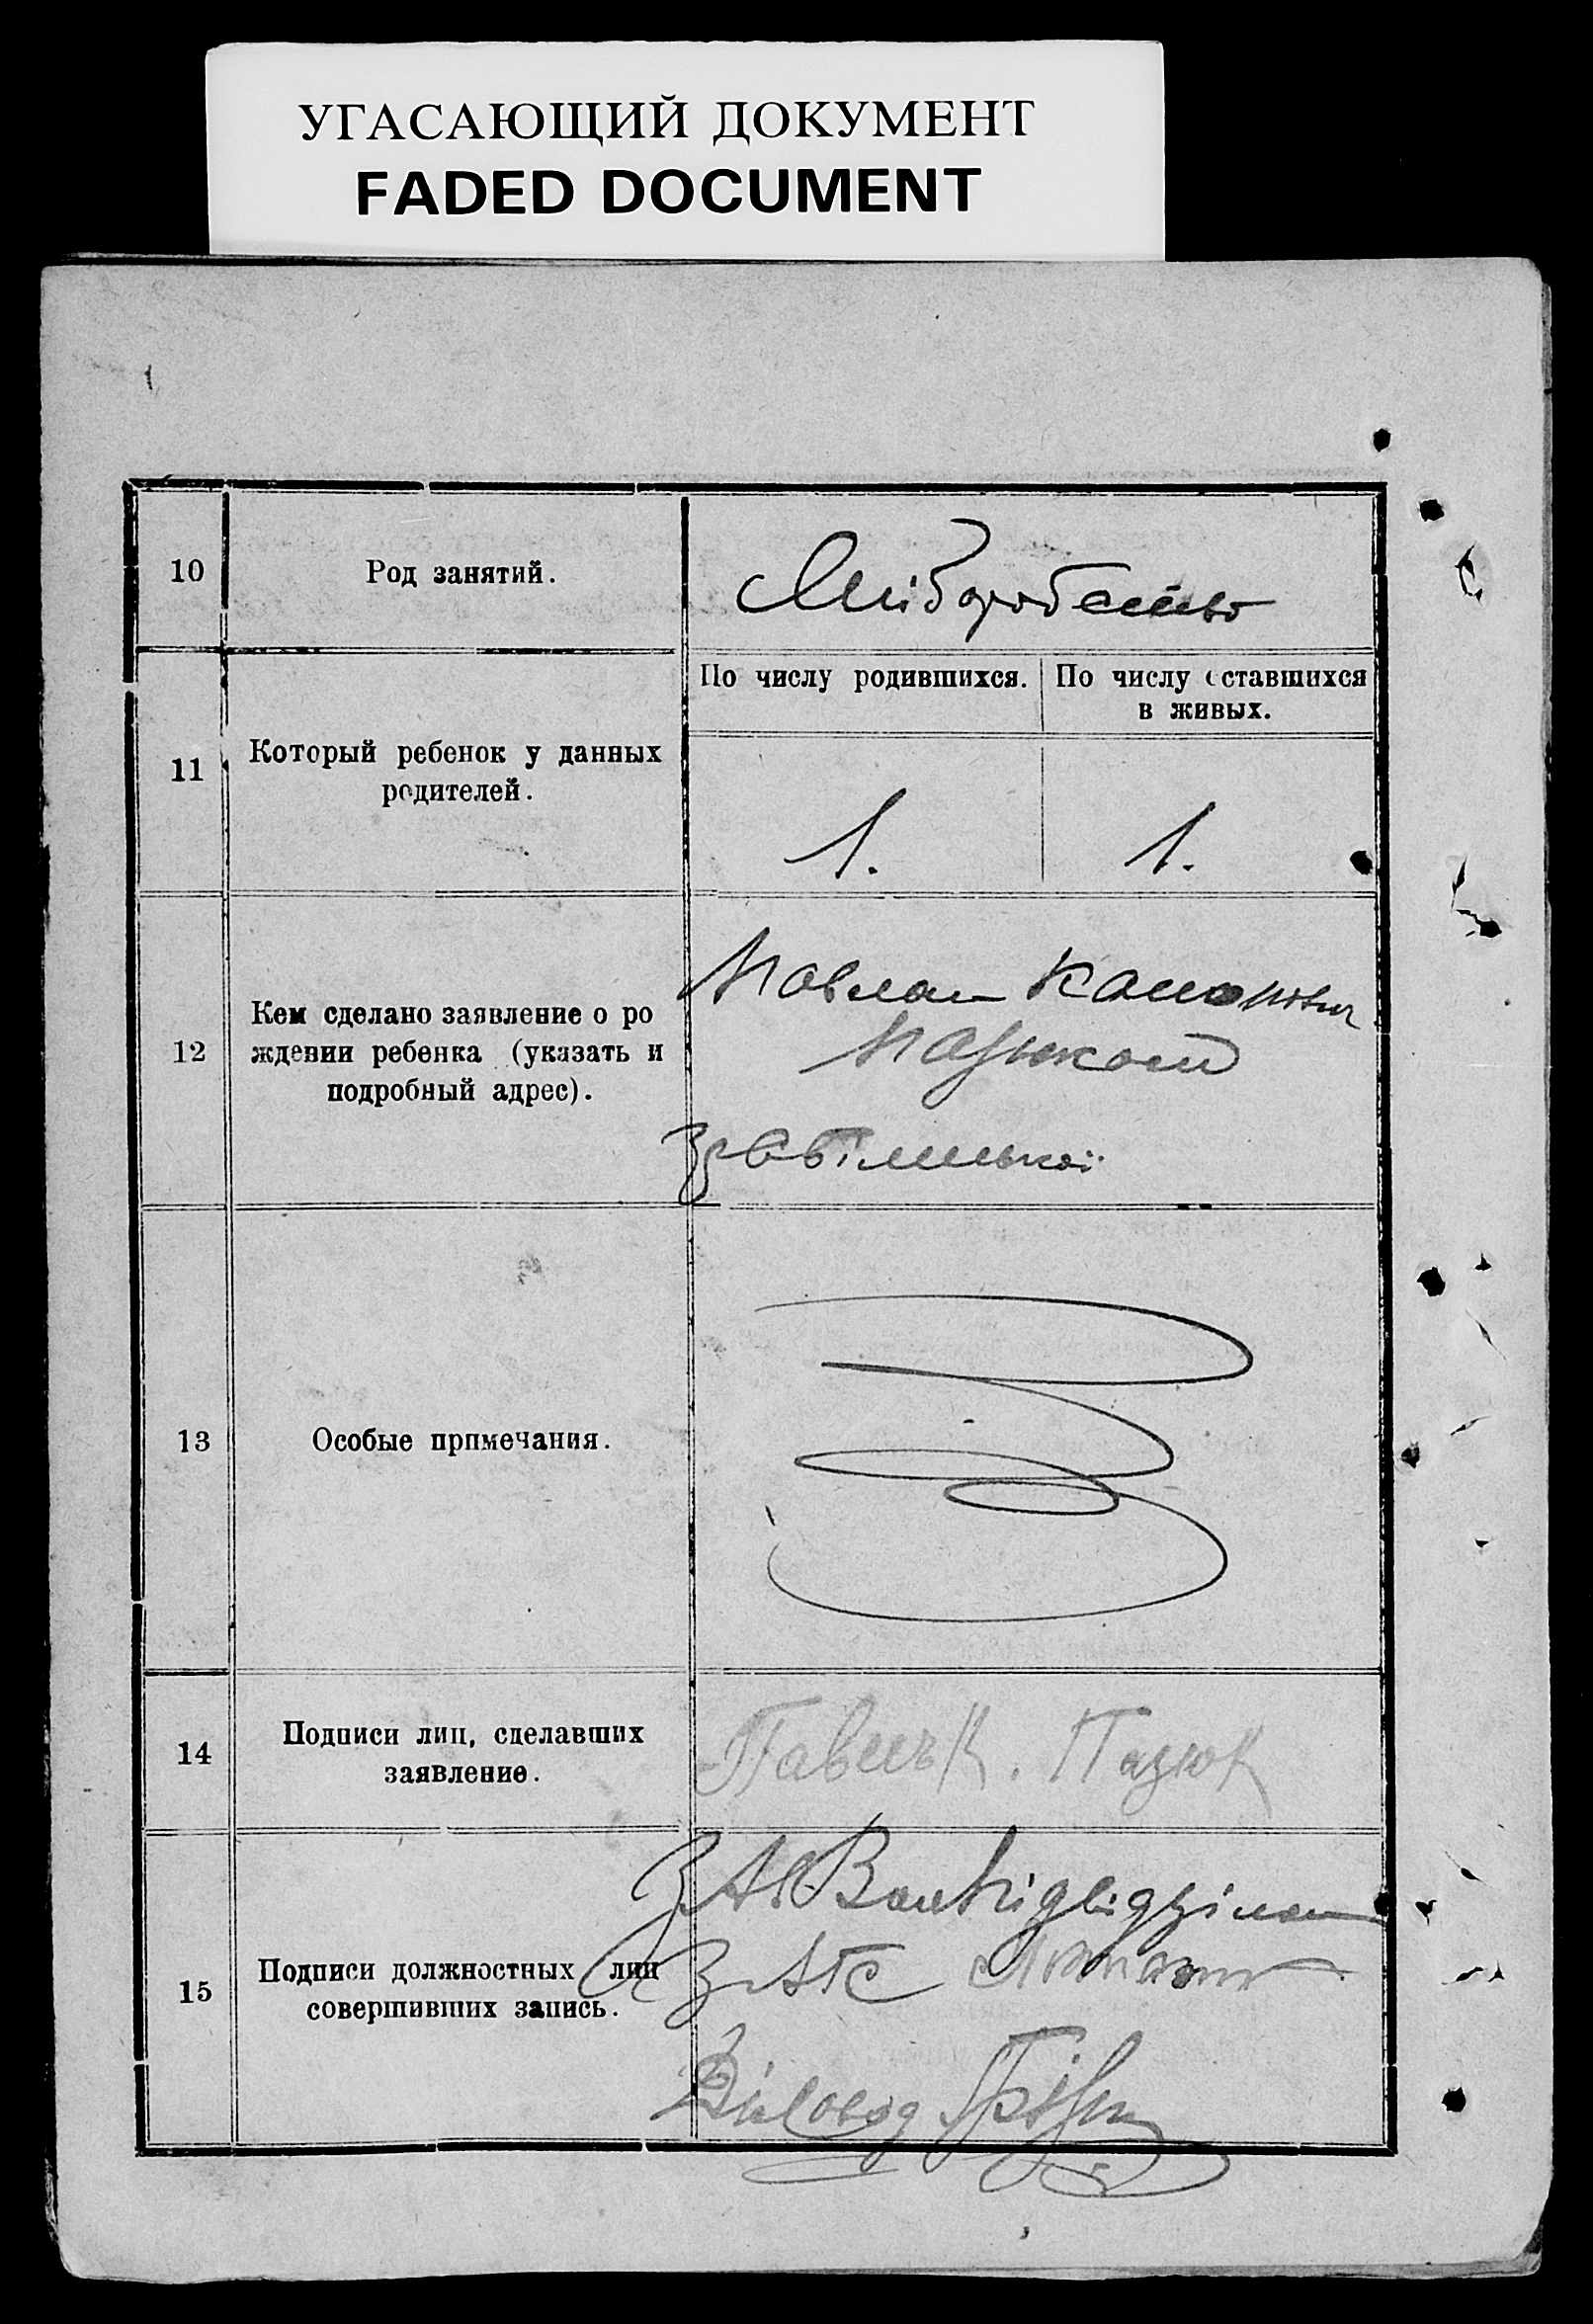 УГАСАЮЩИЙ ДОКУМЕНТ
FADED DOCUMENT
10
Род занятий.
Хлiборобство
11
Который ребенок у данных
родителей.
По числу родившихся.
По числу оставшихся
в живых.
1.
1.
12
Кем сделано заявление о ро
ждении ребенка (указать и
подробный адрес).
Павлом
Пазюком
13
Особые примечания.
14
Подписи лиц, сделавших
заявление.
Павелъ К. Пазюк
15
Подписи должностных лиц
совершивших запись.
Дiловод